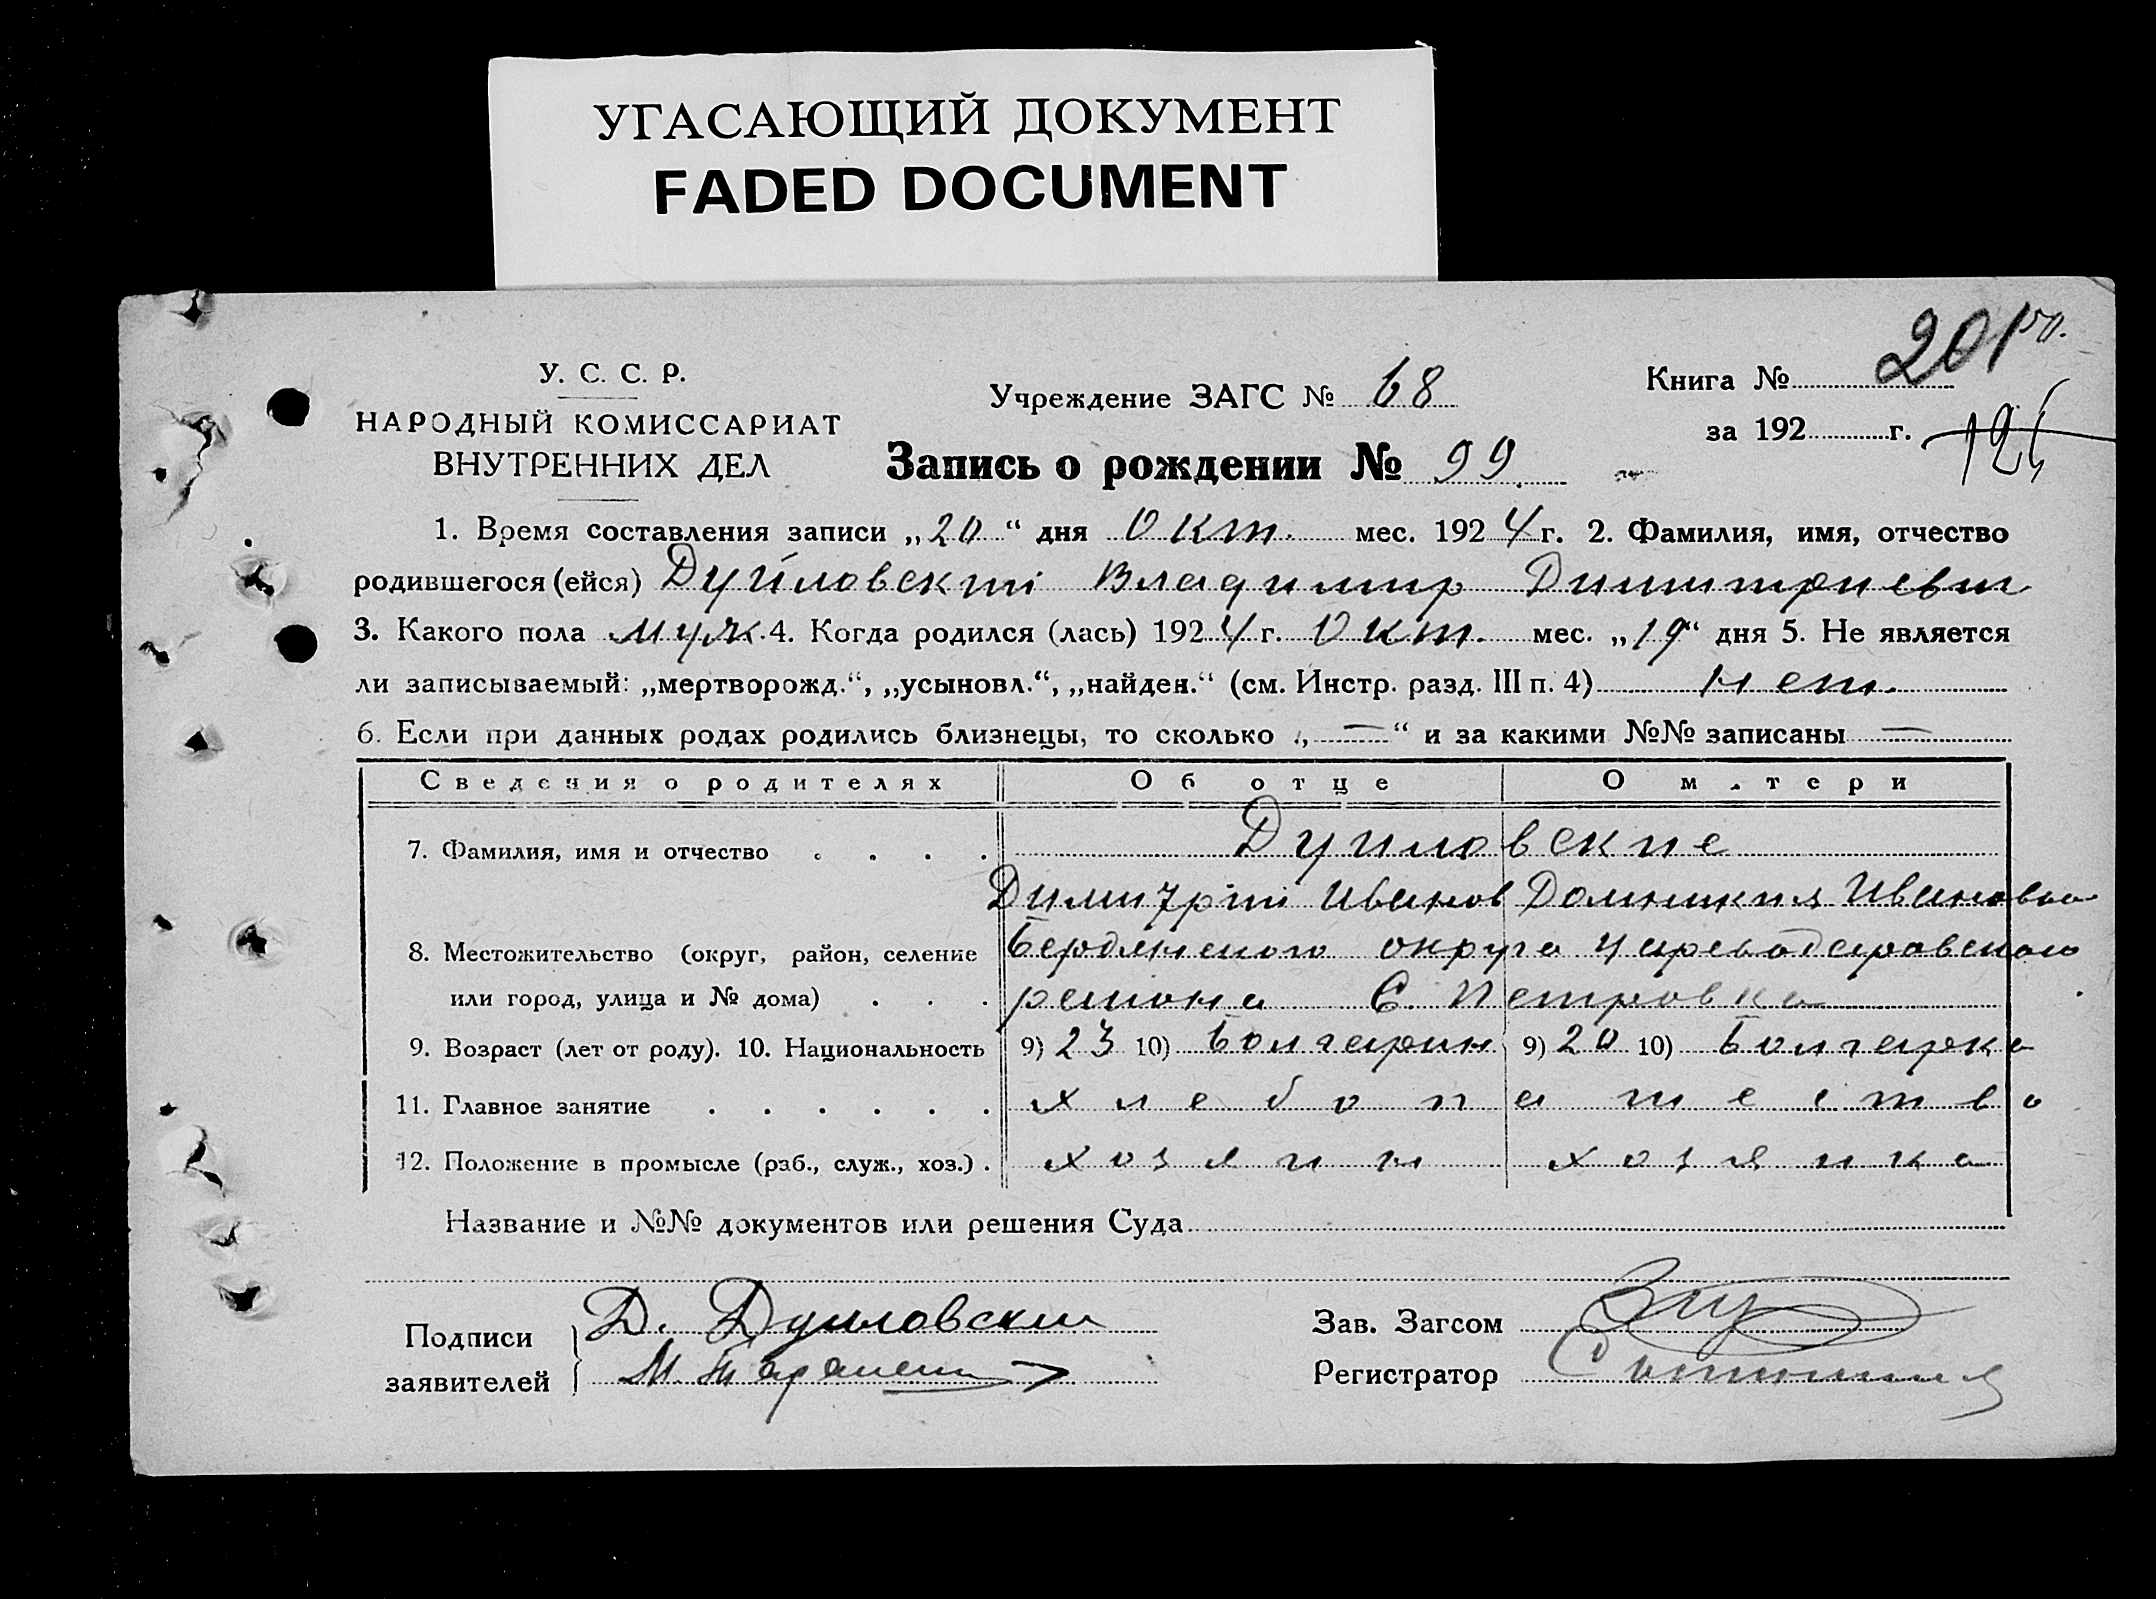 УГАСАЮЩИЙ ДОКУМЕНТ
FADED DOCUMENT
201 50.
У. С. С. Р.
НАРОДНЫЙ КОМИССАРИАТ
ВНУТРЕННИХ ДЕЛ
Учреждение ЗАГС № 68
Книга №
за 192 г.
Запись о рождении № 99
1. Время составления записи „20“ дня Окт. мес. 1924 г. 2. Фамилия, имя, отчество
родившегося (ейся) Дуйловский Владимир Димитриевич
3. Какого пола муж. 4. Когда родился (лась) 1924 г. Окт. мес. „19“ дня 5. Не является
ли записываемый: „мертворожд.“, „усыновл.“, „найден.“ (см. Инстр. разд. III п. 4) нет.
6. Если при данных родах родились близнецы, то сколько „—“ и за какими №№ записаны —
Сведения о родителях Об отце О матери
7. Фамилия, имя и отчество . . . . Дуиловские
Димитрий Иванов Домникия Ивановна
8. Местожительство (округ, район, селение Бердянского округа Цареводаровского
или город, улица и № дома) . . . района С. Петровка
9. Возраст (лет от роду). 10. Национальность 9) 23 10) Болгарин 9) 20 10) Болгарка
11. Главное занятие . . . . . . хлебопашество
12. Положение в промысле (раб., служ., хоз.) . хозяин хозяйка
Название и №№ документов или решения Суда
Подписи
заявителей
Д. Дуиловский
Зав. Загсом
Регистратор